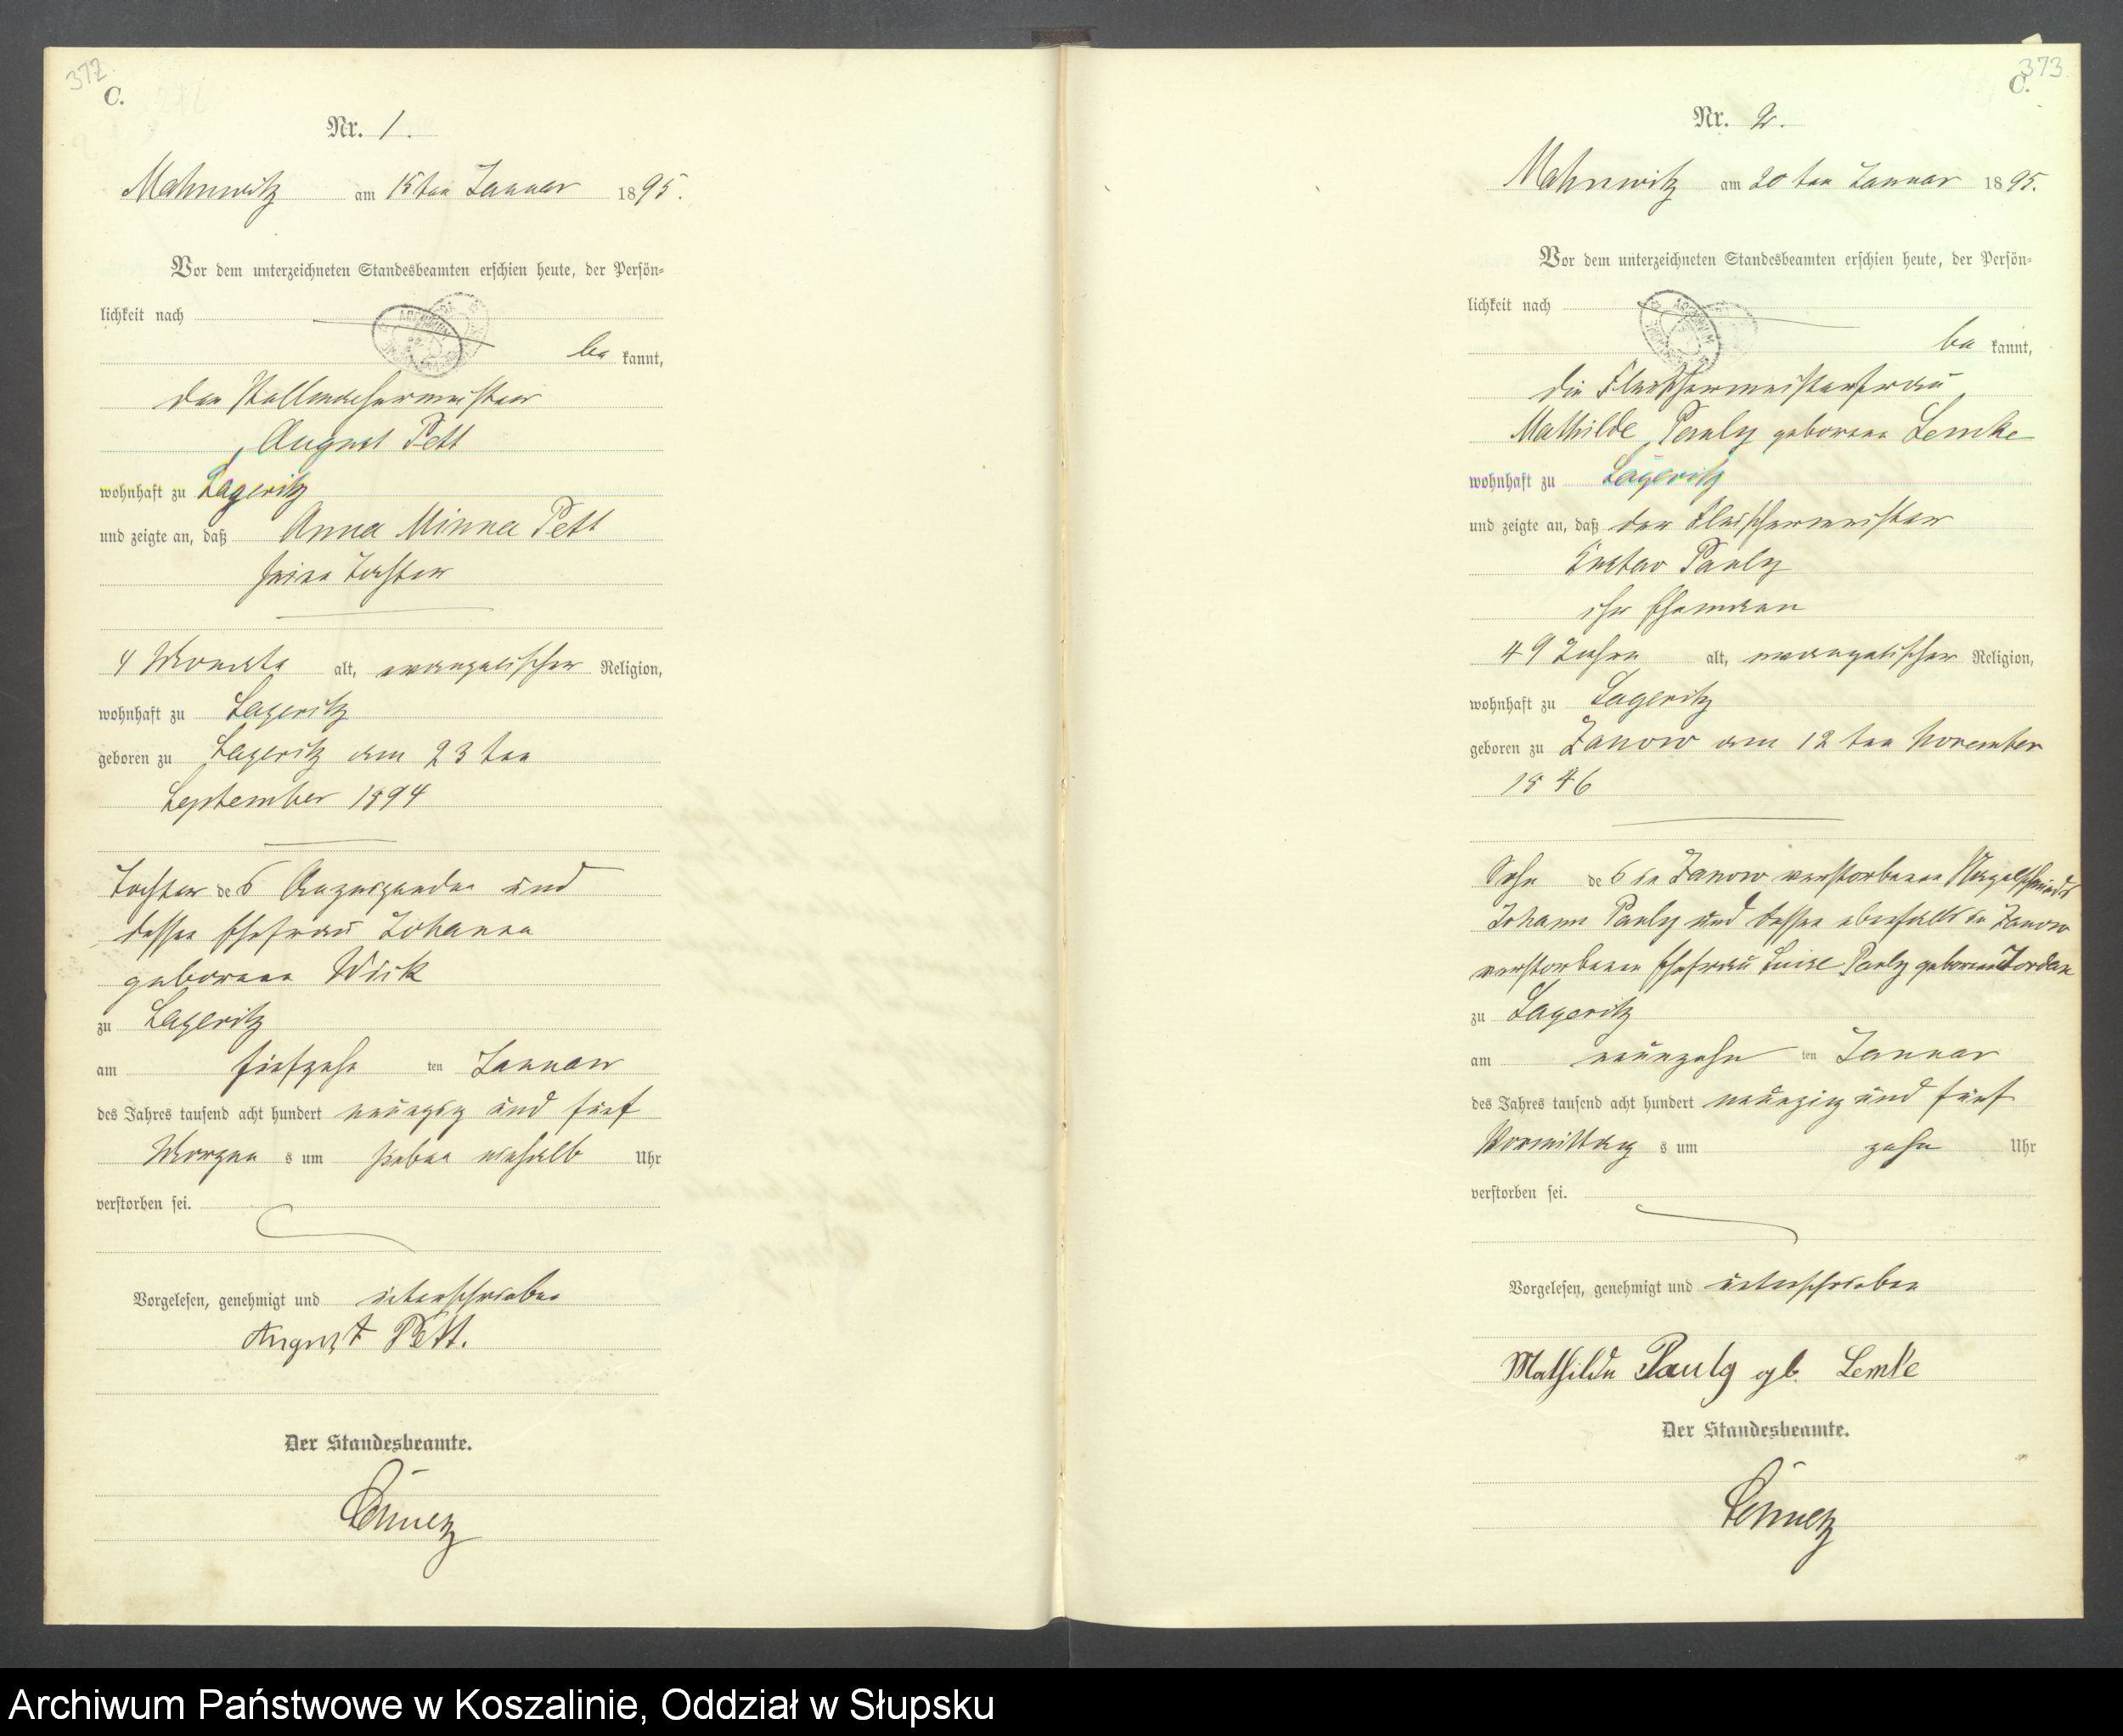 372
C.
Nr. 1.
Mahnwitz am 15ten Januar 1895.
Vor dem unterzeichneten Standesbeamten erschien heute, der Persön-
lichkeit nach
be kannt,
der Stellmachermeister
August Pett
wohnhaft zu Lageritz
und zeigte an, daß Anna Minna Pett
seine Tochter
4 Monate alt, evangelischer Religion,
wohnhaft zu Lageritz
geboren zu Lageritz am 23ten
September 1894
Tochter des Anzeigenden und
dessen Ehefrau Johanna
geborene Wick
zu Lageritz
am fünfzehn ten Januar
des Jahres tausend acht hundert neunzig und fünf
Morgen s um sieben einhalb Uhr
verstorben sei.
Vorgelesen, genehmigt und unterschrieben
August Pett.
Der Standesbeamte.
373
C.
Nr. 2.
Mahnwitz am 20ten Januar 1895.
Vor dem unterzeichneten Standesbeamten erschien heute, der Persön-
lichkeit nach
be kannt,
die Fleischermeisterfrau
Mathilde Pauly geborene Lemke
wohnhaft zu Lageritz
und zeigte an, daß der Fleischermeister
Gustav Pauly
ihr Ehemann
49 Jahre alt, evangelischer Religion,
wohnhaft zu Lageritz
geboren zu Zanow am 12ten November
1846
Sohn des in Zanow verstorbenen Nagelschmieds
Johann Pauly und dessen ebenfalls in Zanow
verstorbenen Ehefrau Luise Pauly geborene Jordan
zu Lageritz
am neunzehn ten Januar
des Jahres tausend acht hundert neunzig und fünf
Vormittag s um zehn Uhr
verstorben sei.
Vorgelesen, genehmigt und unterschrieben
Mathilde Pauly gb. Lemke
Der Standesbeamte.
Archiwum Państwowe w Koszalinie, Oddział w Słupsku